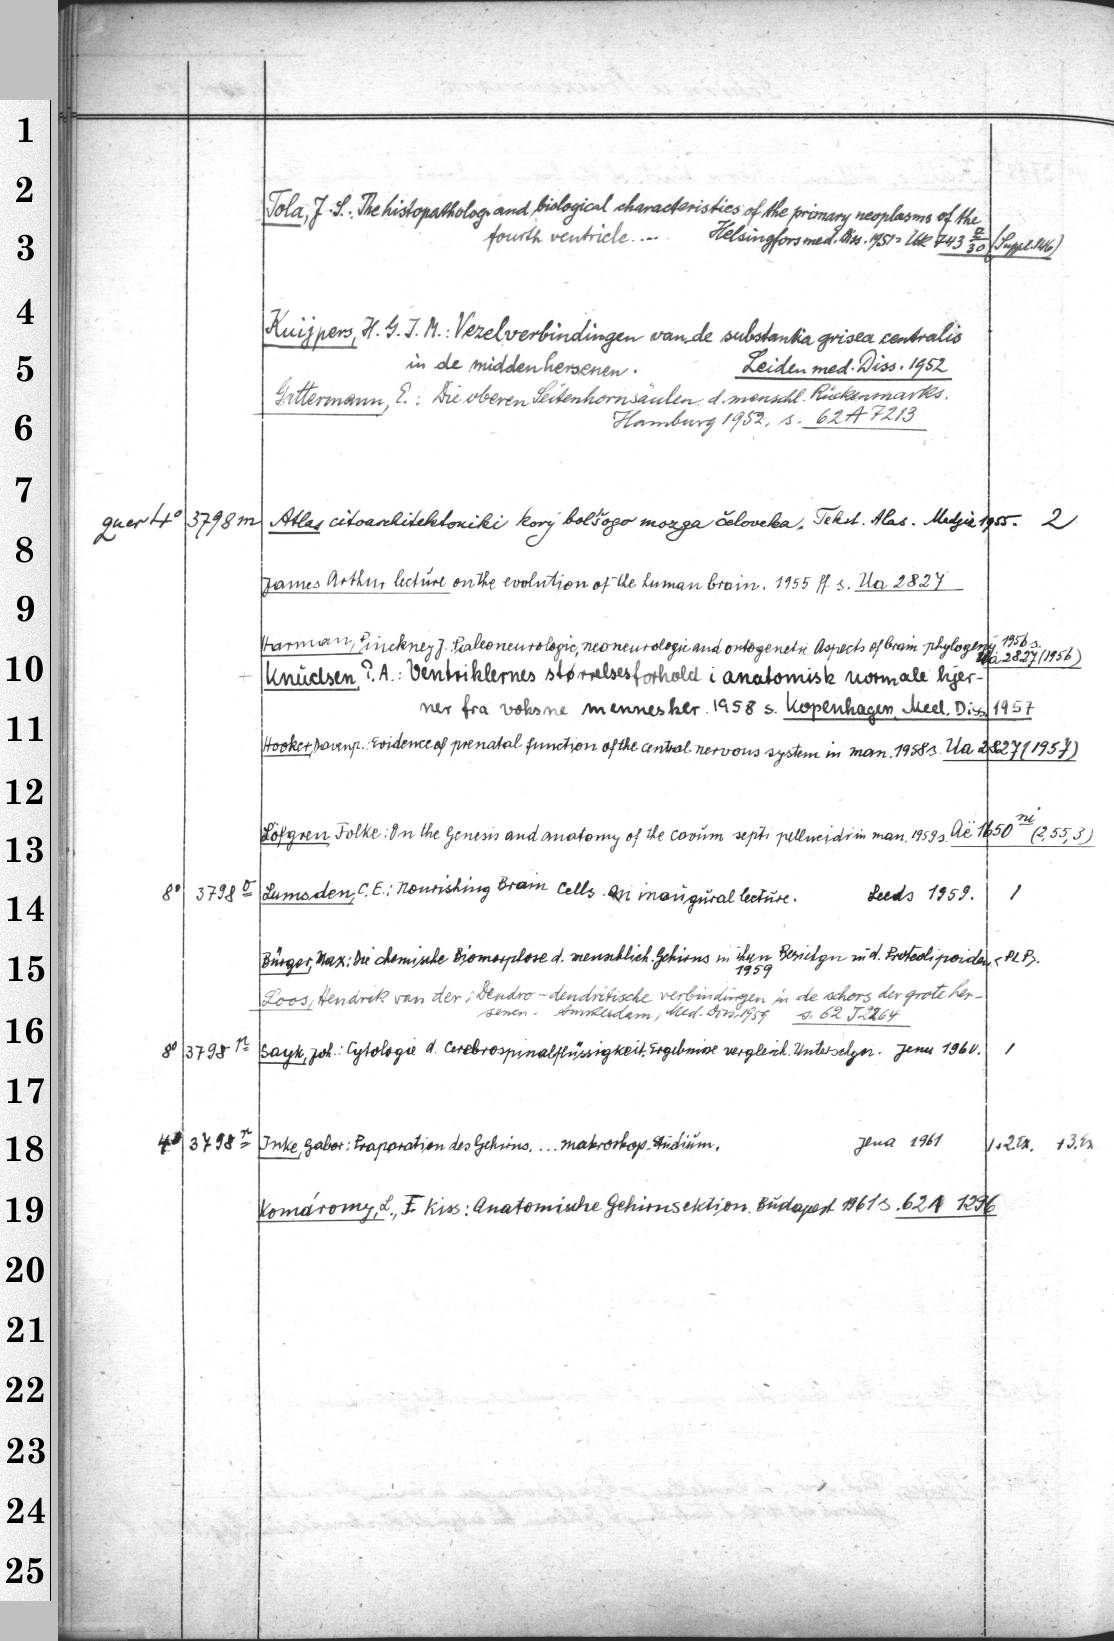 1
2
Tola, J. S.: The histopatholog. and biological characteristics of the primary neoplasms of the
3
fourth ventricle.... Helsingfors med. Diss. 1951 s. Uk 743 a/30 (Suppl. 146)
4
Kuijpers, H. G. J. M.: Vezelverbindingen van de substantia grisea centralis
5
in de middenhersenen. Leiden med. Diss. 1952
Gattermann, E.: Die oberen Seitenhornsäulen d. menschl. Rückenmarks.
6
Hamburg 1952. s. 62 A 7213
7
quer 4° 3798 m Atlas citoarchitektoniki korý bol'šogo mozga čeloveka. Tekst. Atlas. Medgiz 1955. 2
8
James Arthur lecture on the evolution of the human brain. 1955 ff s. Ua 2827
9
Harman, Pinckney J. Paleoneurologic, neoneurologic and ontogenetic Aspects of brain phylogeny 1956 s.
Ua 2827 (1956)
10
Knudsen, P. A.: Ventriklernes størrelsesforhold i anatomisk normale hjer-
11
ner fra voksne mennesker. 1958 s. Kopenhagen, Med. Diss 1957
Hooker, Davenp.: Evidence of prenatal function of the central nervous system in man. 1958 s. Ua 2827 (1957)
12
13
Löfgren Folke: On the Genesis and anatomy of the cavum septi pellucidi in man. 1959 s. Aë 1650 ni (2,55,3)
14
8° 3798 o Lumsden, C. E.: Nourishing Brain Cells. An inaugural lecture. Leeds 1959. 1
15
Bürger, Max: Die chemische Biomorphose d. menschlich. Gehirns in ihren Beziehgn zu d. Proteolipoiden < PLP>.
1959
Loos, Hendrik van der: Dendro-dendritische verbindingen in de schors der grote her-
16
senen. Amsterdam, Med. Diss. 1959 s. 62 J 2264
8° 3798 p Sayk, Joh.: Cytologie d. Cerebrospinalflüssigkeit. Ergebnisse vergleich. Unterschgn. Jena 1960. 1
17
18
4° 3798 r Inke, Gabor: Präparation des Gehirns. ... makroskop. Studium. Jena 1961 1+2.Ex. +3.Ex
19
Komáromy, L., F. Kiss: Anatomische Gehirnsektion. Budapest 1961 s. 62 A 1296
20
21
22
23
24
25